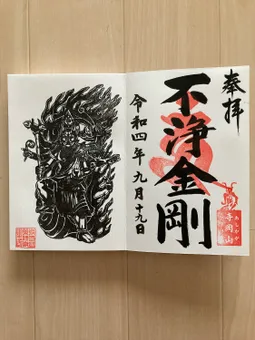 奉拝
不浄金剛
令和四年九月十九日
寺岡山